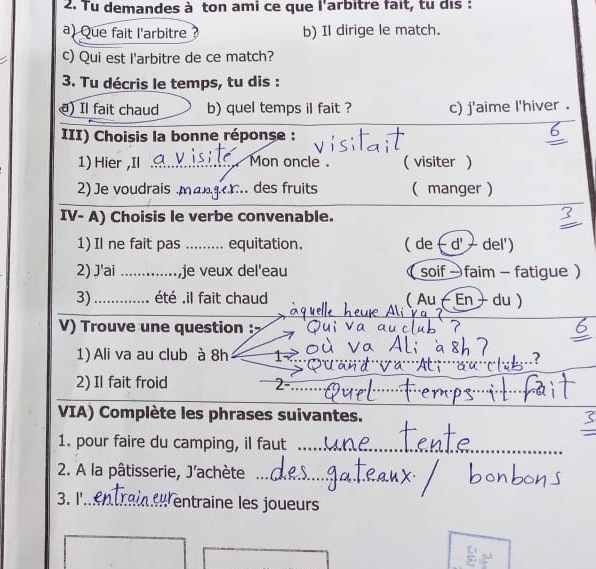 2. Tu demandes à ton ami ce que l'arbitre fait, tu dis :
a) Que fait l'arbitre ? b) Il dirige le match.
c) Qui est l'arbitre de ce match?
3. Tu décris le temps, tu dis :
a) Il fait chaud b) quel temps il fait ? c) j'aime l'hiver .
III) Choisis la bonne réponse : visitait 6
1) Hier ,Il a visité Mon oncle . ( visiter )
2) Je voudrais manger... des fruits ( manger )
IV- A) Choisis le verbe convenable. 3
1) Il ne fait pas ......... equitation. ( de – d' – del')
2) J'ai .............,je veux del'eau ( soif – faim – fatigue )
3) ............. été .il fait chaud ( Au – En – du )
à quelle heure Ali va ?
V) Trouve une question :- Qui va au club ? 6
où va Ali à 8h ?
1) Ali va au club à 8h 1- Quand va Ali au club ...?
2) Il fait froid 2- Quel temps il fait
VIA) Complète les phrases suivantes. 3
1. pour faire du camping, il faut ....une tente
2. A la pâtisserie, J'achète ...des gateaux / bonbons
3. l'..entraineur entraine les joueurs